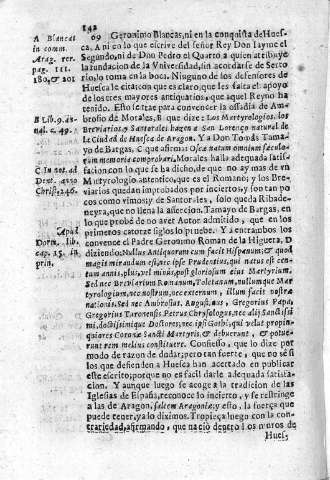 142
A Blancas
in comm.
Arag. rer.
pag. 111.
180, & 201
B Lib. 9. an-
nal. c. 49.
C In not. ad
Dent. anno
Christ. 246.
Apud
Dorm. lib.
cap. 15. in
prin.
69 Geronimo Blancas, ni en la conquista de Hues-
ca, A ni en lo que escrive del señor Rey Don Iayme el
Segundo, ni de Don Pedro el Quarto a quien atribuye
la fundacion de la Vniversidad, sin acordarse de Serto-
rio, lo toma en la boca. Ninguno de los defensores de
Huesca le cita con que es claro, que les falta el apoyo
de los tres mayores antiquarios, que aquel Reyno ha
tenido. Esto se trae para convencer la ossadia de Am-
brosio de Morales, B que dize: Los Martyrologios, los
Breviarios, y Santorales hazen a San Lorenço natural de
la Ciudad de Huesca de Aragon. Y a Don Tomàs Tama-
yo de Bargas, C que afirmò: Osca natum omnium sæculo-
rum memoria comprobari. Morales halla adequada satisfa-
cion con lo que se ha dicho, de que no ay mas de vn
Martyrologio autentico, que es el Romano; y los Bre-
viarios quedan improbados por inciertos, y son tan po-
cos como vimos; y de Santorales, solo queda Ribade-
neyra, que no llena la assercion. Tamayo de Bargas, en
lo que probò de no aver Autor admitido, que en los
primeros catorze siglos lo pruebe. Y a entrambos los
convence el Padre Geronimo Roman de la Higuera, D
diziendo: Nullus Antiquorum eum facit Hispanum; & quod
magis mirandum est, nec ipse Prudentius, qui natus est cen-
tum annis, plus, vel minus, post gloriosum eius Martyrium,
Sed nec Breviarium Romanum, Toletanum, nullumque Mar-
tyrologium, nec nostrum, nec externum, illum facit nostræ
nationis. Sed nec Ambrosius, Augustinus, Gregorius Papa,
Gregorius Taronensis Petrus Chrysologus, nec alij Sanctissi-
mi, doctissimique Doctores, nec ipsi Gothi, qui velut propin-
quiores Coronæ Sancti Martyris, & debuerant, & potue-
runt rem melius constituere. Confiesso, que lo dize por
modo de razon de dudar, pero tan fuerte, que no sè si
los que defienden a Huesca han acertado en publicar
este escrito; porque no es facil darle adequada satisfa-
cion. Y aunque luego se acoge a la tradicion de las
Iglesias de España, reconoce lo incierto, y se restringe
a las de Aragon, saltem Aragoniæ; y esto, la fuerça que
puede tener, ya lo diximos. Tropieça luego con la con-
trariedad, afirmando, que naciò dentro los muros de
Hues-